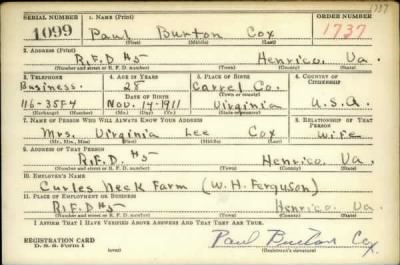 1737
SERIAL NUMBER 1. NAME (Print) ORDER NUMBER
1099 Paul Burton Cox 1737
(First) (Middle) (Last)
2. ADDRESS (Print)
R.F.D #5 Henrico Va.
(Number and street or R. F. D. number) (Town) (County) (State)
3. TELEPHONE 4. AGE IN YEARS 5. PLACE OF BIRTH 6. COUNTRY OF CITIZENSHIP
Business. 28 Carrel Co.
DATE OF BIRTH (Town or county)
116-35F4 Nov. 14-1911 Virginia U.S.A.
(Exchange) (Number) (Mo.) (Day) (Yr.) (State or country)
7. NAME OF PERSON WHO WILL ALWAYS KNOW YOUR ADDRESS 8. RELATIONSHIP OF THAT PERSON
Mrs. Virginia Lee Cox Wife
(Mr., Mrs., Miss) (First) (Middle) (Last)
9. ADDRESS OF THAT PERSON
R.F.D. #5 Henrico Va.
(Number and street or R. F. D. number) (Town) (County) (State)
10. EMPLOYER'S NAME
Curles Neck Farm (W. H. Ferguson)
11. PLACE OF EMPLOYMENT OR BUSINESS
R.F.D #5 Henrico Va.
(Number and street or R. F. D. number) (Town) (County) (State)
I AFFIRM THAT I HAVE VERIFIED ABOVE ANSWERS AND THAT THEY ARE TRUE.
REGISTRATION CARD
D. S. S. Form 1 (over) Paul Burton Cox
(Registrant's signature)